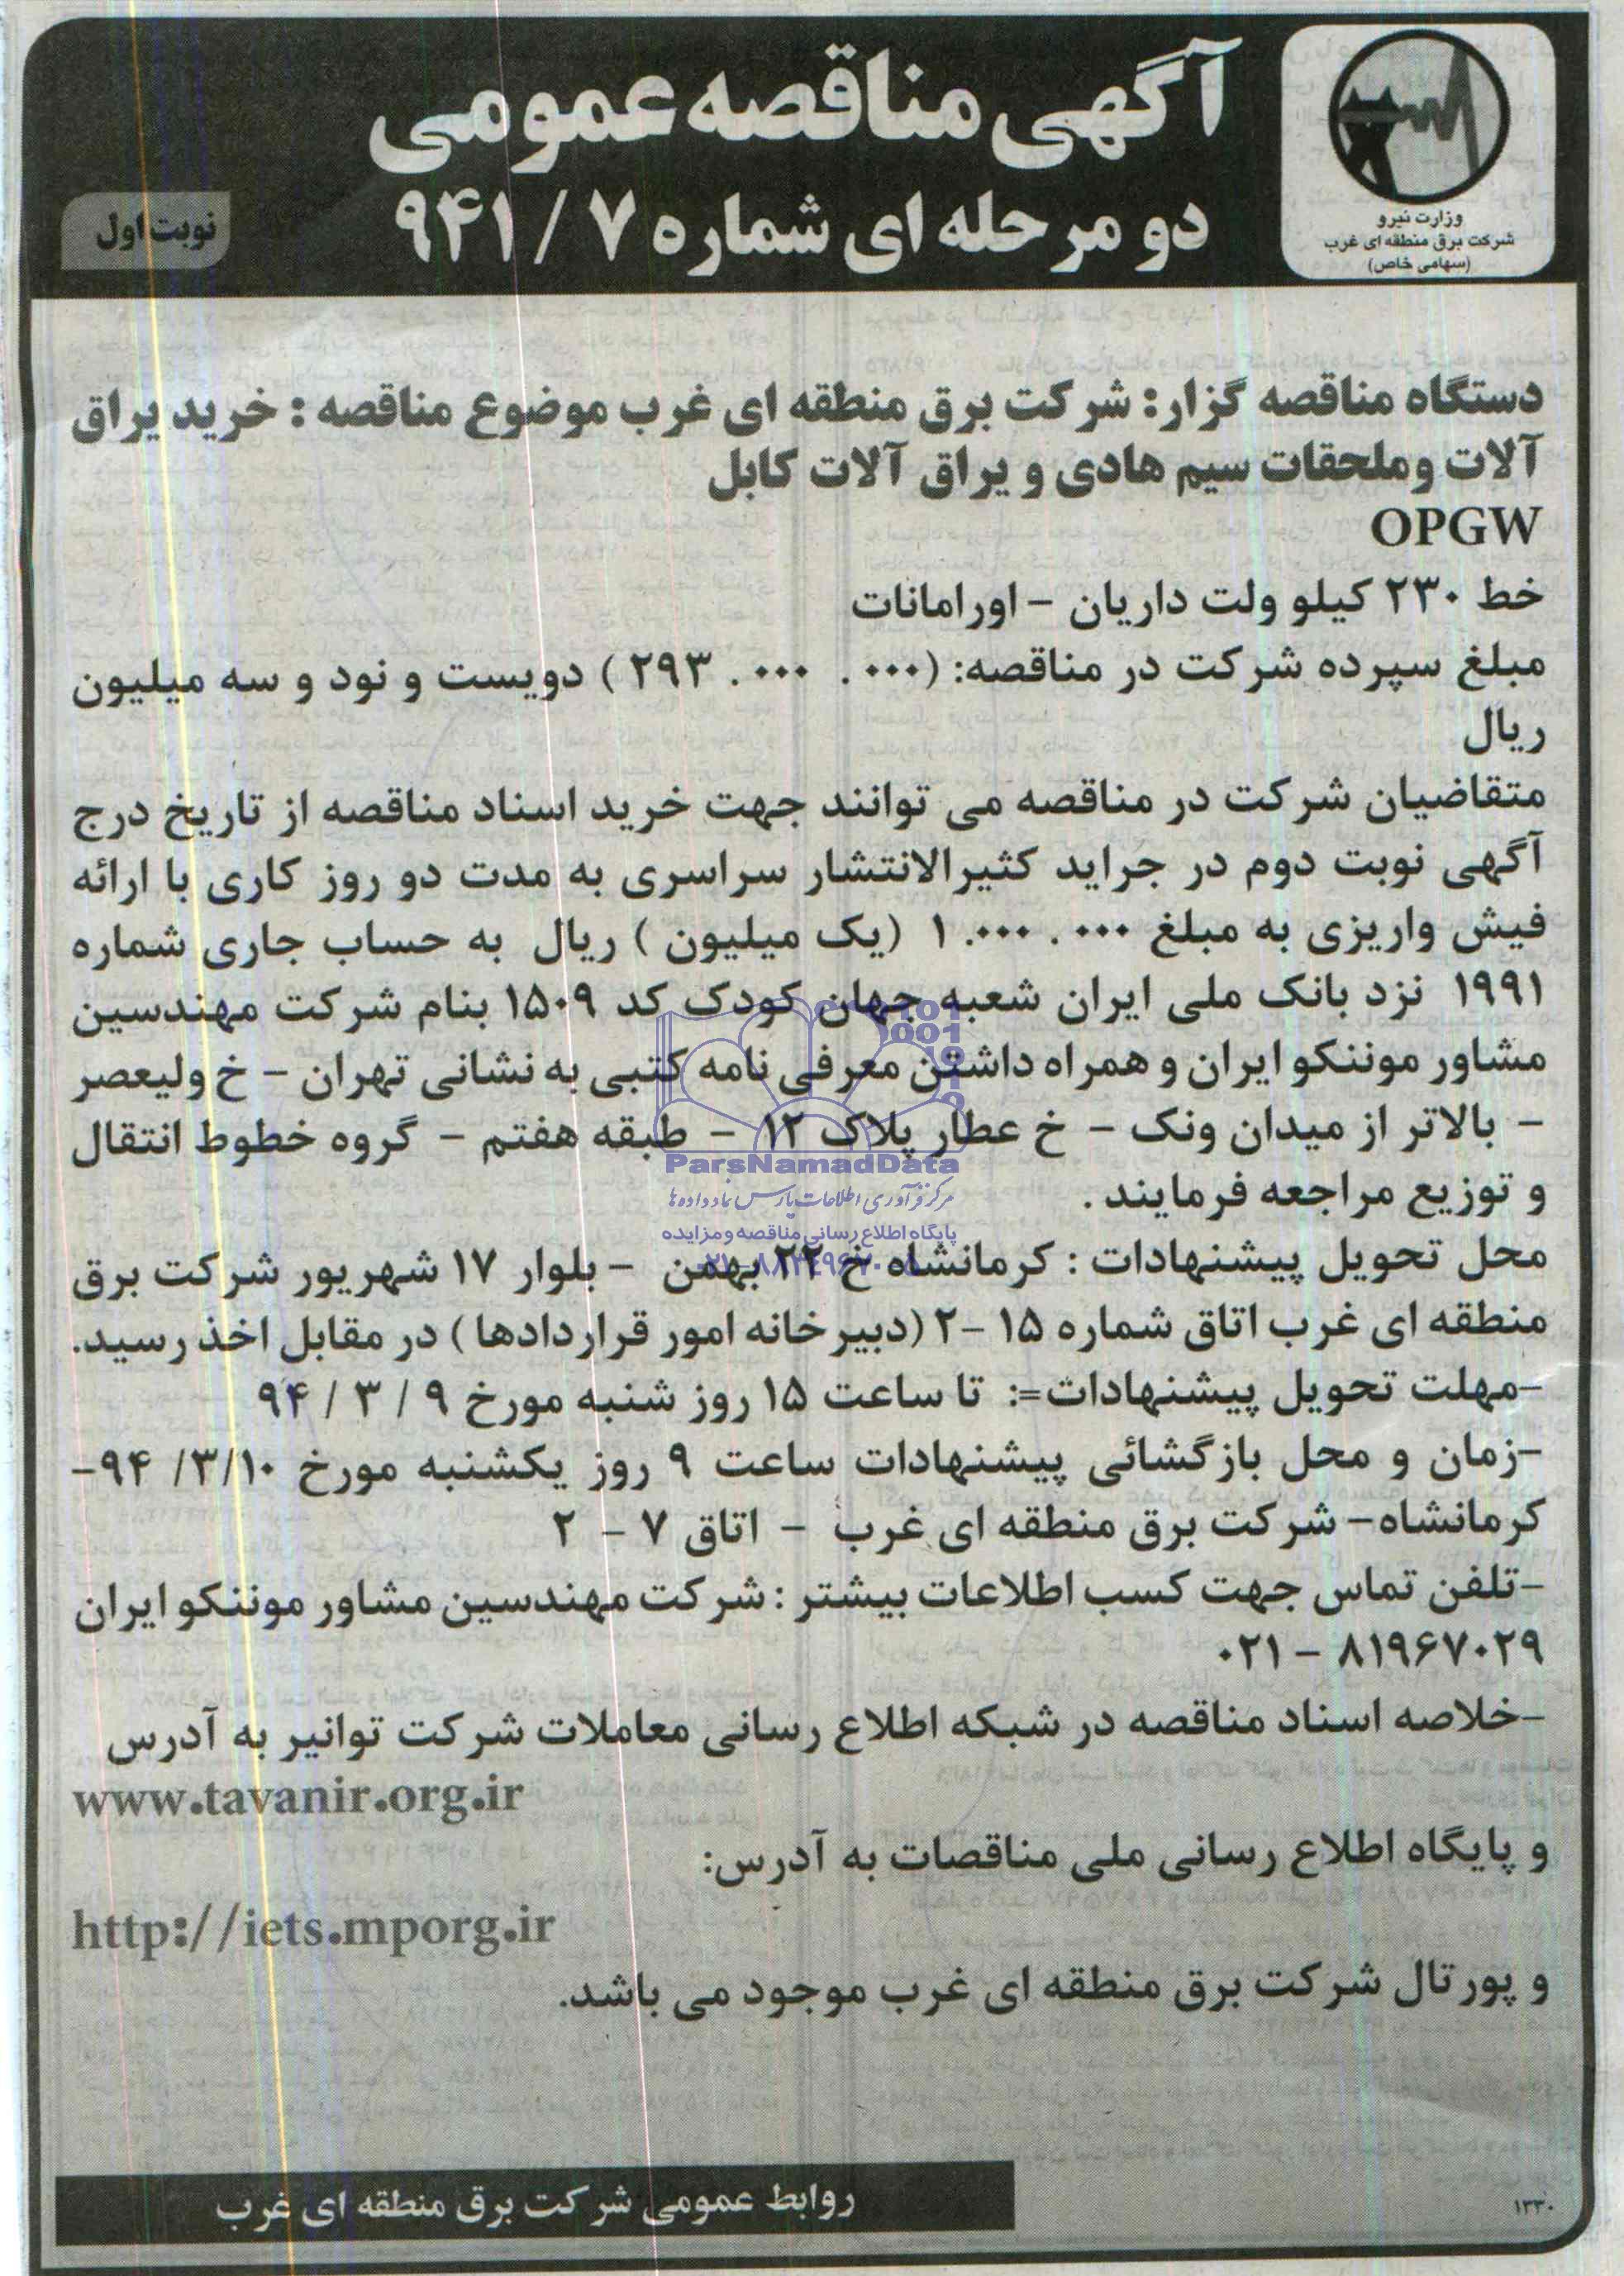 آگهی مناقصه عمومی
دو مرحله ای شماره ۷ / ۹۴۱
نوبت اول
وزارت نیرو
شرکت برق منطقه ای غرب
(سهامی خاص)
دستگاه مناقصه گزار: شرکت برق منطقه ای غرب موضوع مناقصه : خرید یراق
آلات وملحقات سیم هادی و یراق آلات کابل
OPGW
خط ۲۳۰ کیلو ولت داریان - اورامانات
مبلغ سپرده شرکت در مناقصه: (۲۹۳.۰۰۰.۰۰۰ ) دویست و نود و سه میلیون
ریال
متقاضیان شرکت در مناقصه می توانند جهت خرید اسناد مناقصه از تاریخ درج
آگهی نوبت دوم در جراید کثیرالانتشار سراسری به مدت دو روز کاری با ارائه
فیش واریزی به مبلغ ۱.۰۰۰.۰۰۰ (یک میلیون ) ریال به حساب جاری شماره
۱۹۹۱ نزد بانک ملی ایران شعبه جهان کودک کد ۱۵۰۹ بنام شرکت مهندسین
مشاور موننکو ایران و همراه داشتن معرفی نامه کتبی به نشانی تهران - خ ولیعصر
- بالاتر از میدان ونک - خ عطار پلاک ۱۲ - طبقه هفتم - گروه خطوط انتقال
و توزیع مراجعه فرمایند .
ParsNamadData
مرکز فرآوری اطلاعات پارس نماد داده ها
پایگاه اطلاع رسانی مناقصه و مزایده
محل تحویل پیشنهادات : کرمانشاه خ ۲۲ بهمن - بلوار ۱۷ شهریور شرکت برق
منطقه ای غرب اتاق شماره ۱۵ -۲ (دبیرخانه امور قراردادها ) در مقابل اخذ رسید.
-مهلت تحویل پیشنهادات=: تا ساعت ۱۵ روز شنبه مورخ ۹ / ۳ / ۹۴
-زمان و محل بازگشائی پیشنهادات ساعت ۹ روز یکشنبه مورخ ۳/۱۰/ ۹۴-
کرمانشاه- شرکت برق منطقه ای غرب - اتاق ۷ - ۲
-تلفن تماس جهت کسب اطلاعات بیشتر : شرکت مهندسین مشاور موننکو ایران
۸۱۹۶۷۰۲۹ - ۰۲۱
-خلاصه اسناد مناقصه در شبکه اطلاع رسانی معاملات شرکت توانیر به آدرس
www.tavanir.org.ir
و پایگاه اطلاع رسانی ملی مناقصات به آدرس:
http://iets.mporg.ir
و پورتال شرکت برق منطقه ای غرب موجود می باشد.
روابط عمومی شرکت برق منطقه ای غرب
۱۳۳۰